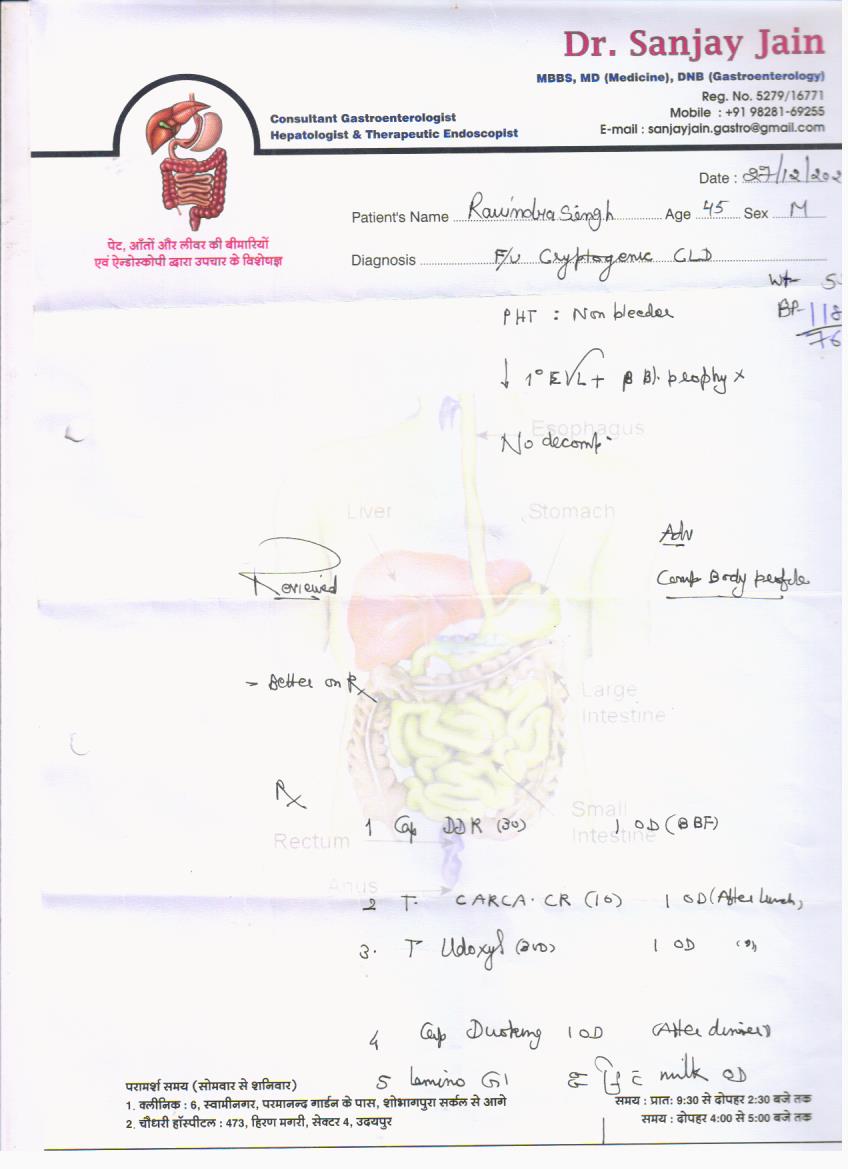 Dr. Sanjay Jain
MBBS, MD (Medicine), DNB (Gastroenterology)
Reg. No. 5279/16771
Mobile : +91 98281-69255
E-mail : sanjayjain.gastro@gmail.com
Consultant Gastroenterologist
Hepatologist & Therapeutic Endoscopist
पेट, आँतों और लीवर की बीमारियों
एवं ऐन्डोस्कोपी द्वारा उपचार के विशेषज्ञ
Date : 27/12/202
Patient's Name Ravindra Singh Age 45 Sex M
Diagnosis F/U Cryptogenic CLD
Wt- 5
BP- 118
76
PHT : Non bleeder
↓ 1° EVL + β Bl. prophy x
No decomp.
Esophagus
Liver
Stomach
Adv
Reviewed
Comp Body profile
- Better on Rx
Large
Intestine
Rx
Small
Intestine
1 Cap DDR (30) 1 OD (BBF)
Rectum
Anus
2 T. CARCA. CR (10) 1 OD (After lunch)
3. T Udoxyl (300) 1 OD (")
4 Cap 1 OD (After dinner)
5 Lamino G1 c̄ milk OD
परामर्श समय (सोमवार से शनिवार)
1. क्लीनिक : 6, स्वामीनगर, परमानन्द गार्डन के पास, शोभागपुरा सर्कल से आगे
समय : प्रात: 9:30 से दोपहर 2:30 बजे तक
2. चौधरी हॉस्पीटल : 473, हिरण मगरी, सेक्टर 4, उदयपुर
समय : दोपहर 4:00 से 5:00 बजे तक